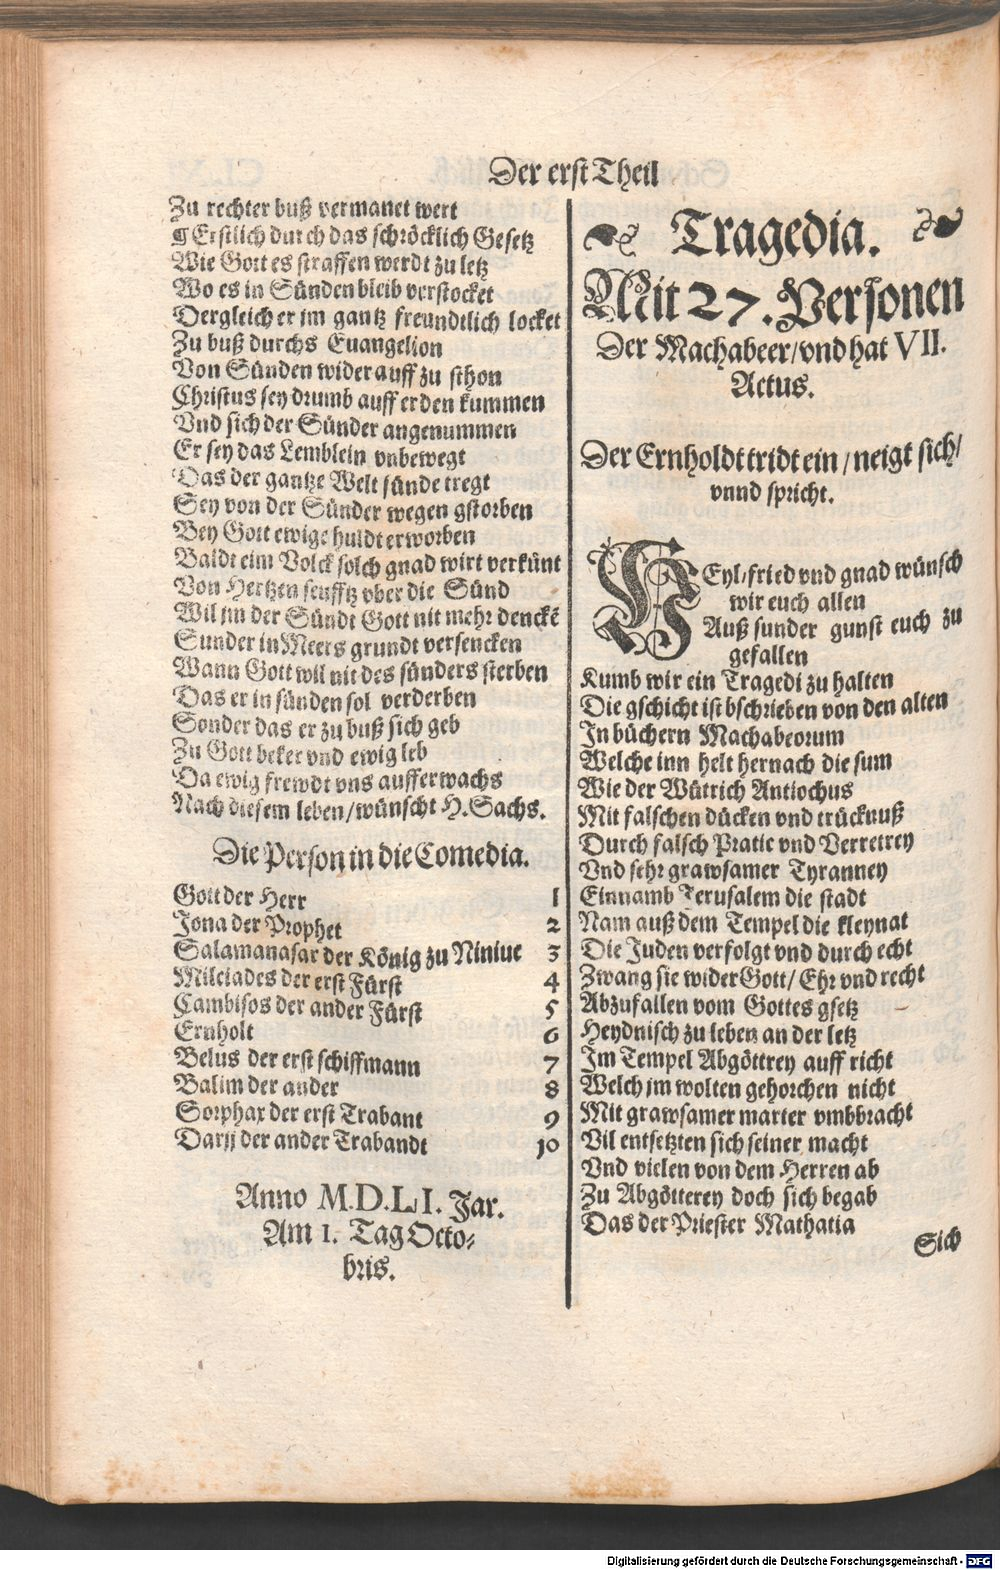 Der erst Theil
Zu rechter buß vermanet wert
¶ Erstlich durch das schröcklich Gesetz
Wie Gott es straffen werdt zu letz
Wo es in Sünden bleib verstocket
Dergleich er jm gantz freundtlich locket
Zu buß durchs Euangelion
Von Sünden wider auff zu sthon
Christus sey drumb auff erden kummen
Vnd sich der Sünder angenummen
Er sey das Lemblein vnbewegt
Das der gantze Welt sünde tregt
Sey von der Sünder wegen gstorben
Bey Gott ewige huldt erworben
Baldt eim Volck solch gnad wirt verkünt
Von Hertzen seufftz vber die Sünd
Wil jm der Sündt Gott nit mehr denckē
Sunder in Meers grundt versencken
Wann Gott wil nit des sünders sterben
Das er in sünden sol verderben
Sonder das er zu buß sich geb
Zu Gott beker vnd ewig leb
Da ewig frewdt vns aufferwachs
Nach diesem leben/wünscht H. Sachs.
Die Person in die Comedia.
Gott der Herr 1
Jona der Prophet 2
Salamanasar der König zu Niniue 3
Milciades der erst Fürst 4
Cambisos der ander Fürst 5
Ernholt 6
Belus der erst schiffmann 7
Balim der ander 8
Sorphax der erst Trabant 9
Darij der ander Trabandt 10
Anno M.D.LI. Jar.
Am 1. Tag Octo-
bris.
Tragedia.
Mit 27. Personen
Der Machabeer/vnd hat VII.
Actus.
Der Ernholdt tridt ein/neigt sich/
vnnd spricht.
HEyl/fried vnd gnad wünsch
wir euch allen
Auß sunder gunst euch zu
gefallen
Kumb wir ein Tragedi zu halten
Die gschicht ist bschrieben von den alten
In büchern Machabeorum
Welche inn helt hernach die sum
Wie der Wütrich Antiochus
Mit falschen dücken vnd trücknuß
Durch falsch Pratic vnd Verretrey
Vnd sehr grawsamer Tyranney
Einnamb Jerusalem die stadt
Nam auß dem Tempel die kleynat
Die Juden verfolgt vnd durch echt
Zwang sie wider Gott/ Ehr vnd recht
Abzufallen vom Gottes gsetz
Heydnisch zu leben an der letz
Im Tempel Abgöttrey auff richt
Welch jm wolten gehorchen nicht
Mit grawsamer marter vmbbracht
Vil entsetzten sich seiner macht
Vnd vielen von dem Herren ab
Zu Abgötterey doch sich begab
Das der Priester Mathatia
Sich
Digitalisierung gefördert durch die Deutsche Forschungsgemeinschaft - DFG